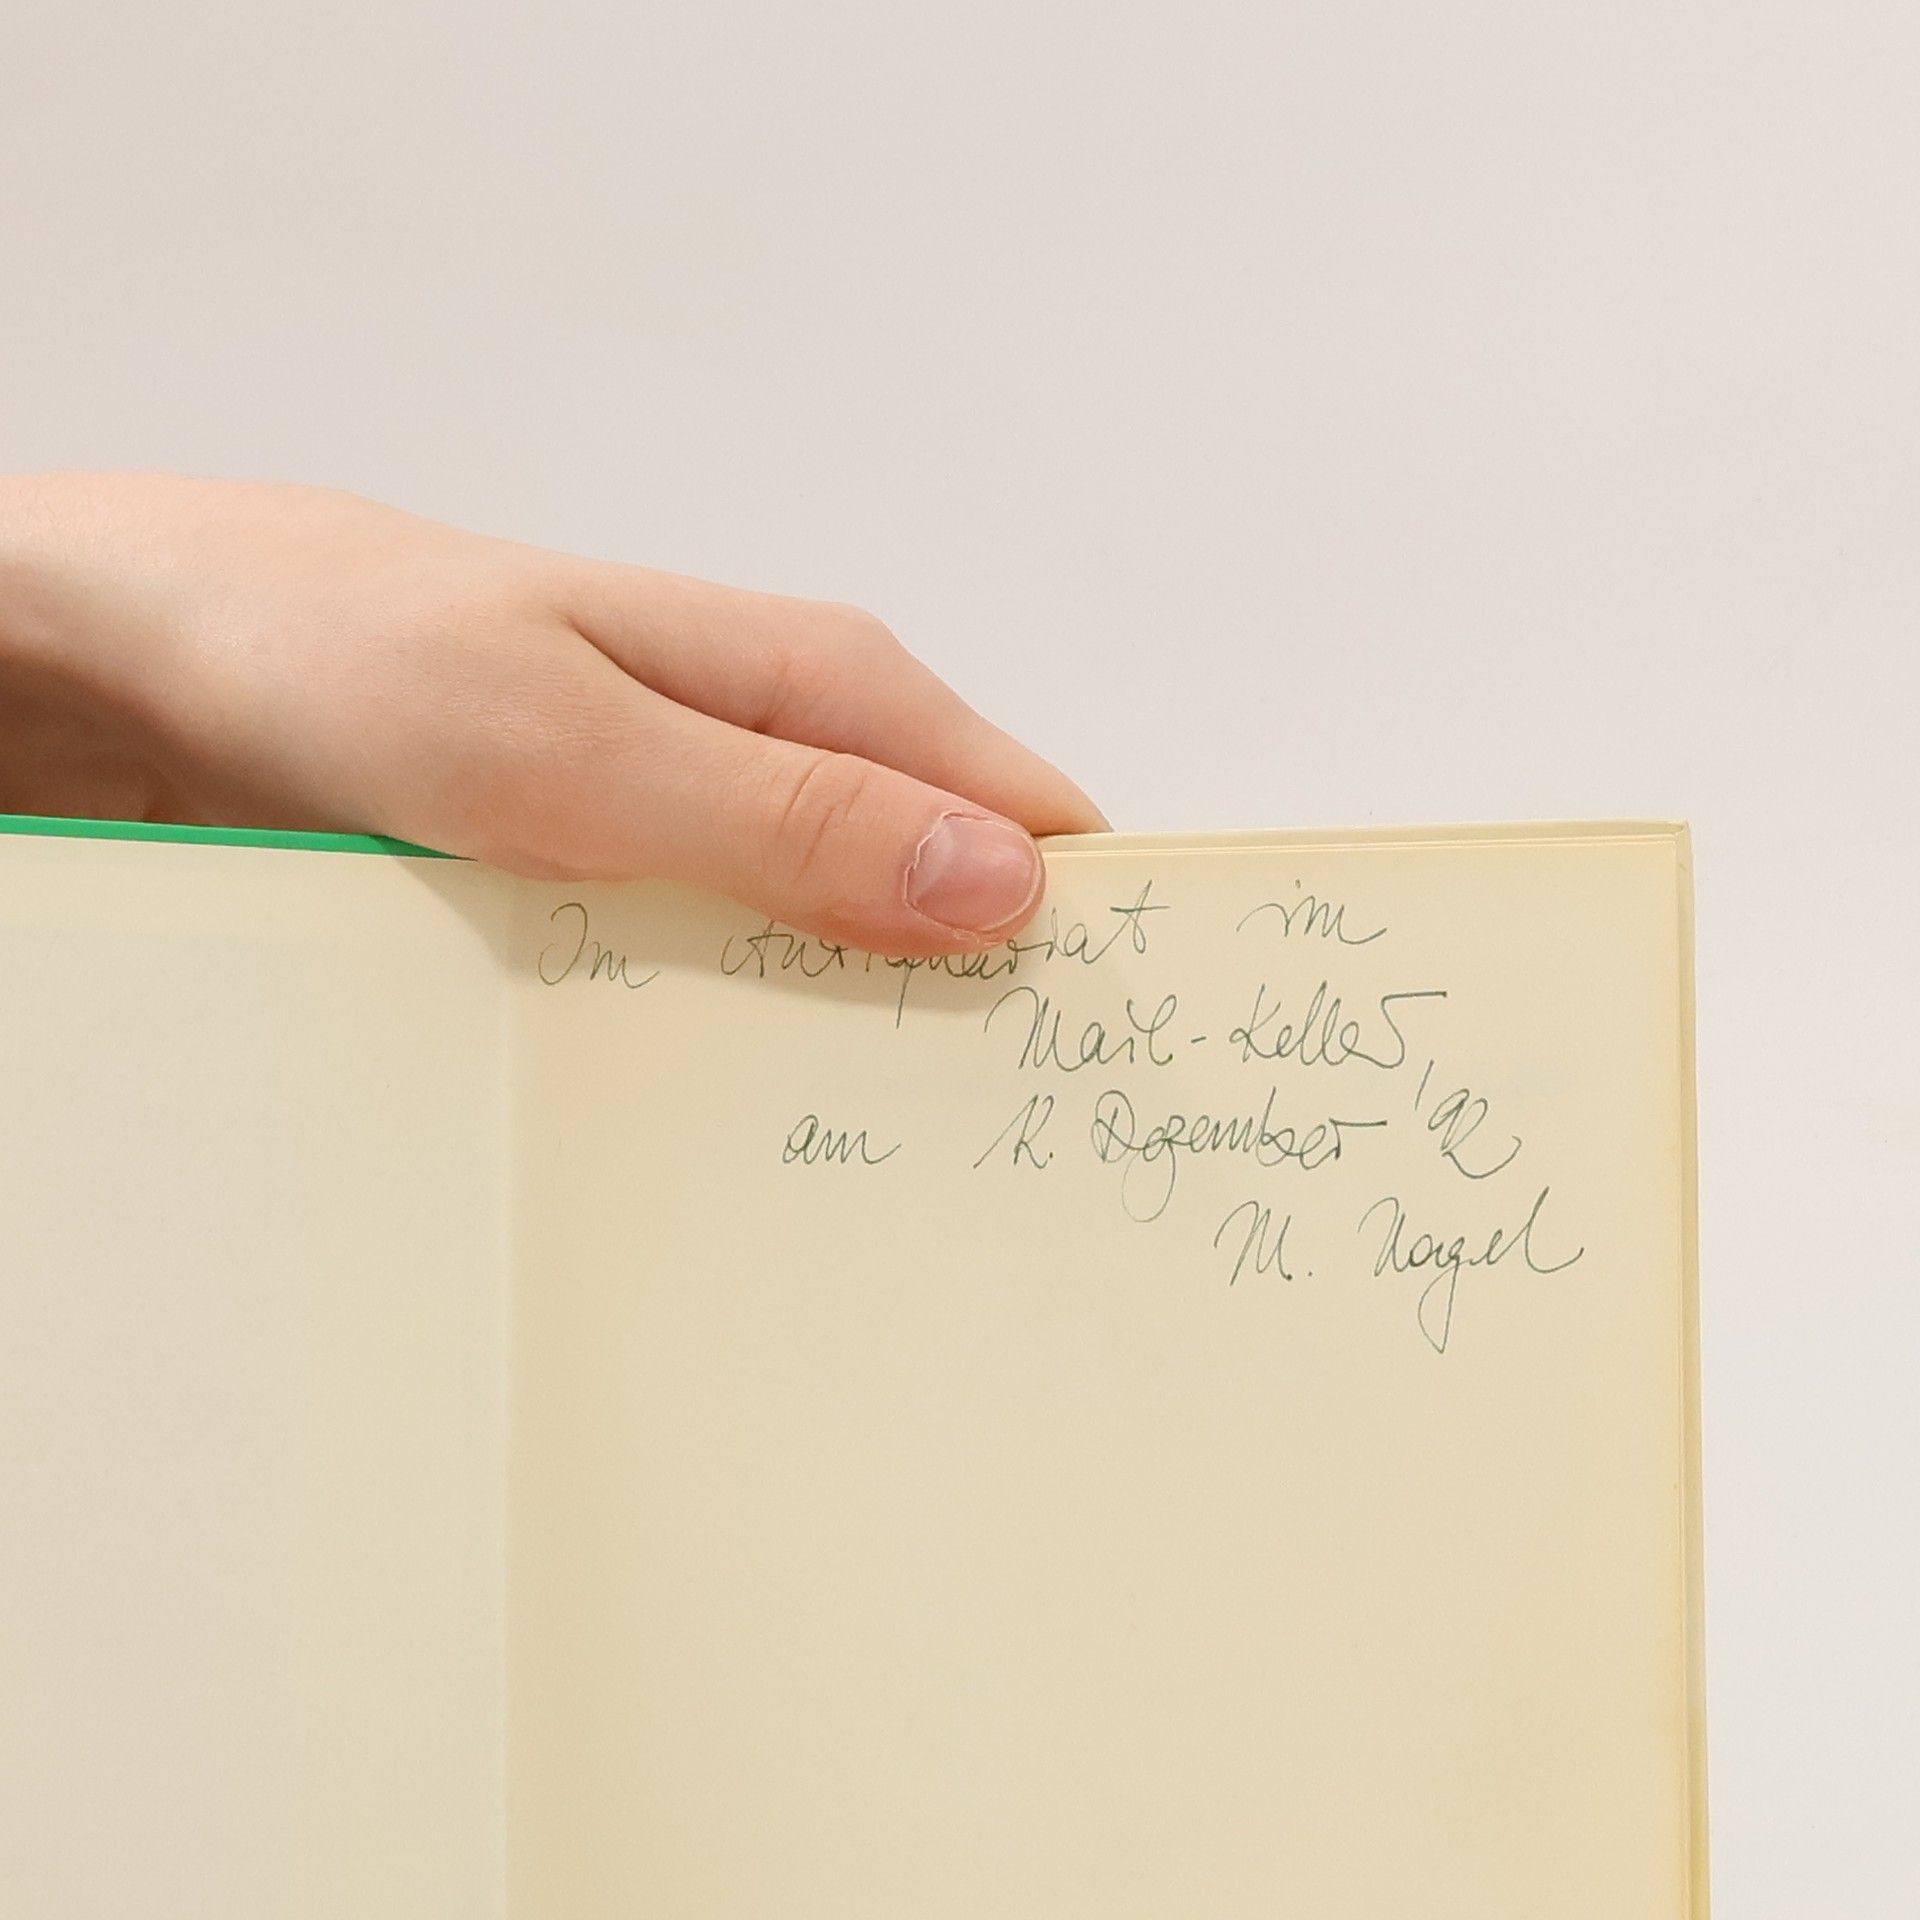 Im Antiquariat im
Mail-Keller,
am 12. Dezember '92
M. Nagel